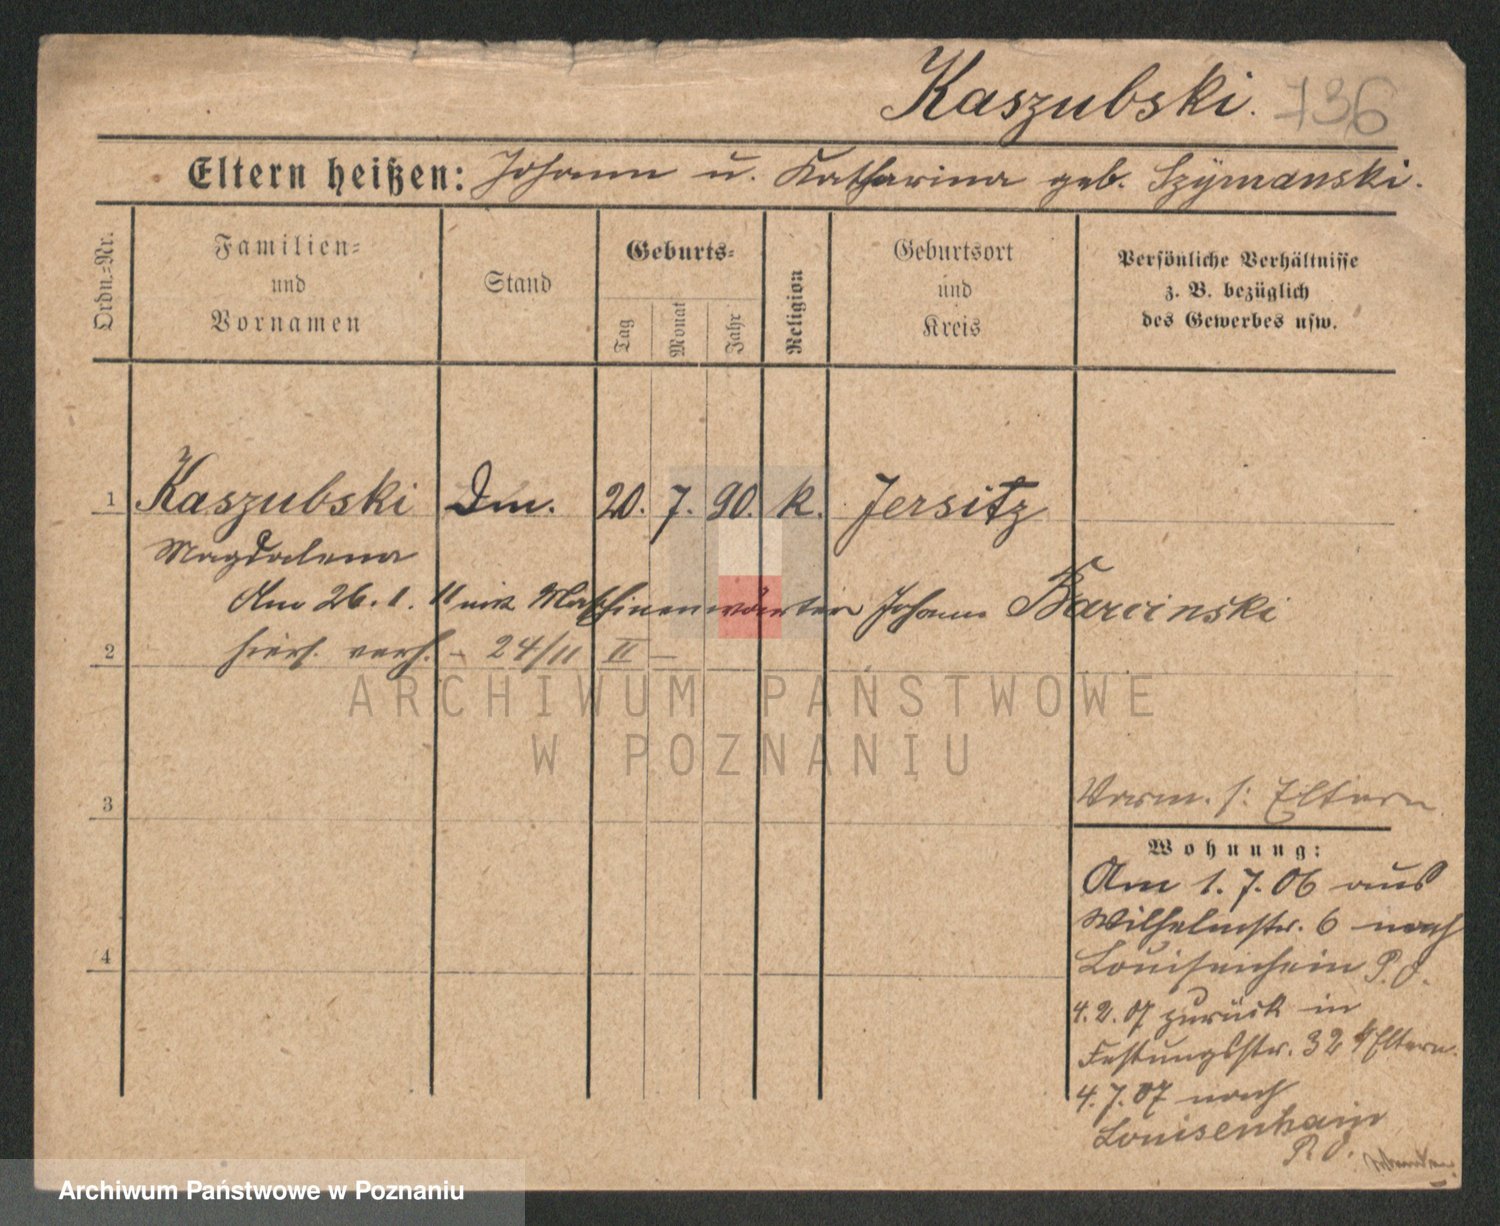 Kaszubski. 736
Eltern heißen: Johann u. Katharina geb. Szymanski.
Ordn.=Nr.
Familien=
und
Vornamen
Stand
Geburts=
Tag
Monat
Jahr
Religion
Geburtsort
und
Kreis
Persönliche Verhältnisse
z. B. bezüglich
des Gewerbes usw.
1 Kaszubski Dm. 20. 7. 90. k. Jersitz
Magdalena
Am 26.1.11 mit Maschinenwärter Johann Barcinski
2 hiers. verh. - 24/11 II -
3
4
Vorm. s: Eltern
Wohnung:
Am 1.7.06 aus
Wilhelmstr. 6 nach
Louisenhain P.O.
4.2.07 zurück in
Festungsstr. 32 Eltern.
4.7.07 nach
Louisenhain
P.O.
ARCHIWUM PAŃSTWOWE
W POZNANIU
Archiwum Państwowe w Poznaniu